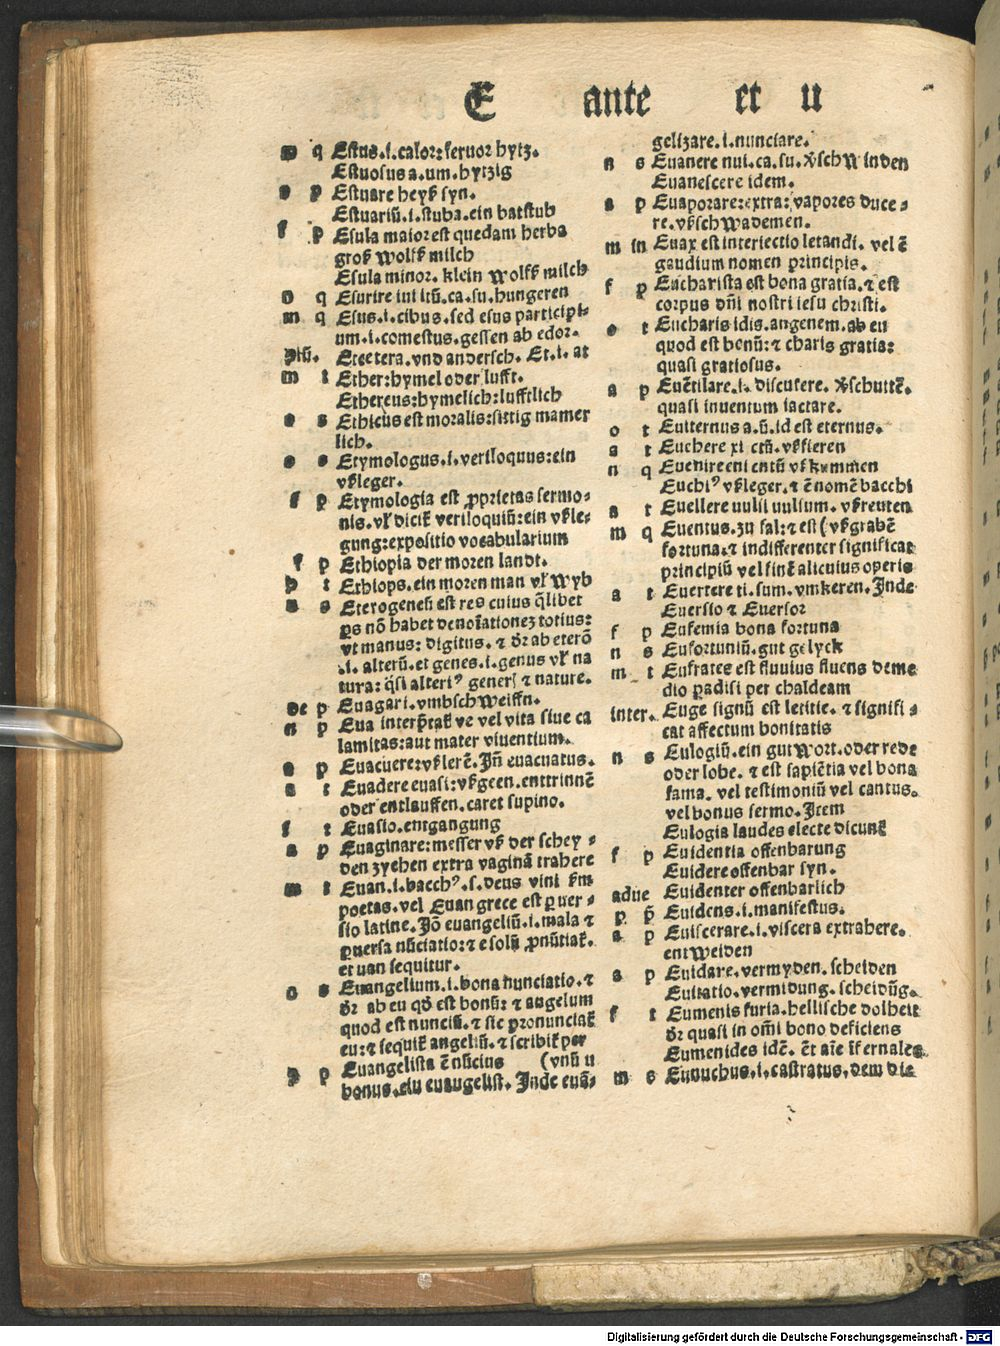 E ante et u
o q Estus.i.calor:feruor hytz.
Estuosus a.um.hytzig
o p Estuare heyß syn.
Estuariū.i.stuba.ein batstub
f p Esula maior est quedam herba
groß wolfß milch
Esula minor. klein wolfß milch
o q Esurire iui itū.ca.su.hungeren
m q Esus.i.cibus.sed esus participi
um.i.comestus.gessen ab edor.
Etcetera.vnd andersch. Et.i. at
m t Ether:hymel oder lufft.
Ethereus:hymelich:lufftlich
o s Ethicus est moralis:sittig mamer
lich.
o s Etymologus.i.veriloquus:ein
vßleger.
f p Etymologia est ꝓprietas sermo-
nis.vl̛ dicit̛ veriloquiū:ein vßle-
gung:expositio vocabularium
f p Ethiopia der moren landt.
p t Ethiops.ein moren man vl̛ wyb
Eterogeneū est res cuius q̄libet
ps nō habet denoīationeꝫ totius:
vt manus: digitus. ⁊ dr̄ ab eterō
.i. alterū.et genes.i.genus vl̛ na
tura: q̄si alteriꝰ generis ⁊ nature.
de p Euagari.vmbschweiffn.
n p Eua interp̄tat̛ ve vel vita siue ca
lamitas:aut mater viuentium.
a p Euacuere:vßlerē. Jn̄ euacuatus.
a t Euadere euasi:vßgeen.enttrinnē
oder entlauffen.caret supino.
f t Euasio.entgangung
a p Euaginare:messer vß der schey-
den zyehen extra vaginā trahere
m t Euan.i.bacchꝰ.s.deus vini ßm
poetas.vel Euan grece est ꝑuer-
sio latine.Jō euangeliū.i.mala ⁊
ꝑuersa nūciatio:⁊ e solū ꝓnūtiat̛.
et uan sequitur.
o s Euangelium.i.bona nunciatio.⁊
dr̄ ab eu qd̄ est bonū: ⁊ angelum
quod est nunciū.⁊ sic pronunciat̛
eu:⁊ sequit̛ angeliū.⁊ scribit̛ per
p p Euangelista ē nūcius (vnū u
bonus.ein euangelist. Jnde euā-
gelizare.i.nunciare.
n s Euanere nui.ca.su.v̛schwinden
Euanescere idem.
a p Euaporare:extra:vapores duce-
re.vßschwademen.
m in Euax est interiectio letandi. vel ē
gaudium nomen principis.
f p Eucharista est bona gratia.⁊ est
corpus dn̄i nostri iesu christi.
o t Eucharis idis.angenem.ab eu
quod est bonū:⁊ charis gratia:
quasi gratiosus.
a p Euētilare.i. discutere. v̛schuttē.
quasi inuentum iactare.
o t Euiternus a.ū.id est eternus.
a t Euehere xi ctū.vßfieren
n q Euenire eni entū vßkummen
Euchiꝰ vßleger.⁊ ē nomē bacchi
a t Euellere uulsi uulsum. vßreuten
m q Euentus.zu fal:⁊ est (vßgrabē
fortuna.⁊ indifferenter significat
principiū vel finē alicuius operis
a t Euertere ti.sum.vmkeren.Jnde
Euersio ⁊ Euersor
f p Eufemia bona fortuna
n s Eufortuniū.gut gelyck
m t Eufrates est fluuius fluens deme
dio ꝑadisi per chaldeam
inter. Euge signū est letitie. ⁊ signifi-
cat affectum bonitatis
n s Eulogiū.ein gut wort.oder rede
oder lobe. ⁊ est sapiētia vel bona
fama. vel testimoniū vel cantus.
vel bonus sermo. Jtem
Eulogia laudes electe dicunt̛
f p Euidentia offenbarung
Euidere offenbar syn.
adue Euidenter offenbarlich
p p̄ Euidens.i.manifestus.
a p Euiscerare.i.viscera extrahere.
entweiden
a p Euidare.vermyden.scheiden
Euitatio.vermidung.scheidūg.
f t Eumenis furia.hellische dolheit
dr̄ quasi in om̄i bono deficiens
Eumenides idē. ēt aīe īfernales
m s Eunuchus.i.castratus.dem die
Digitalisierung gefördert durch die Deutsche Forschungsgemeinschaft - DFG